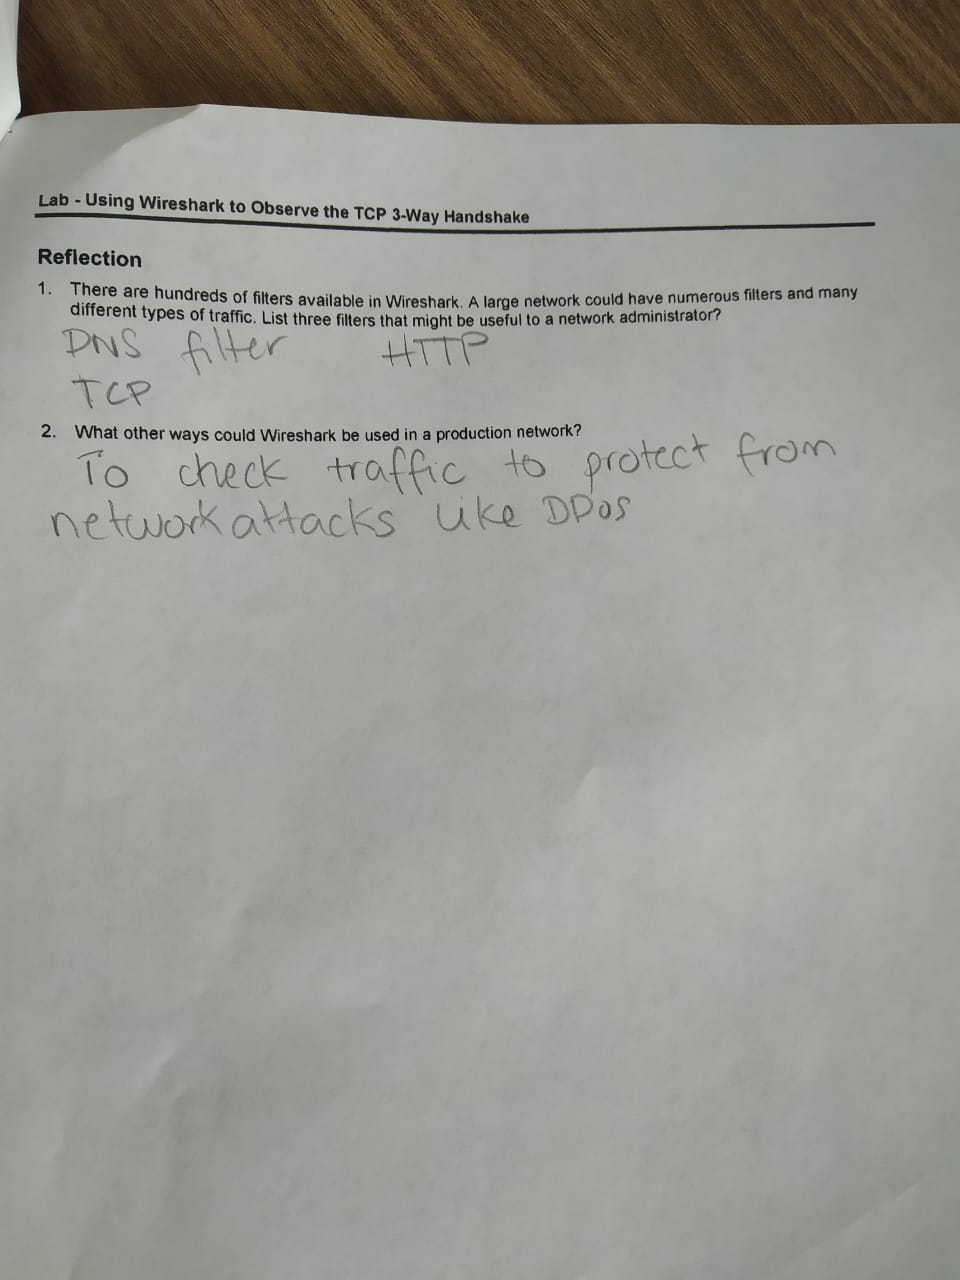 Lab - Using Wireshark to Observe the TCP 3-Way Handshake
Reflection
1. There are hundreds of filters available in Wireshark. A large network could have numerous filters and many
different types of traffic. List three filters that might be useful to a network administrator?
DNS filter HTTP
TCP
2. What other ways could Wireshark be used in a production network?
To check traffic to protect from
network attacks like DDoS